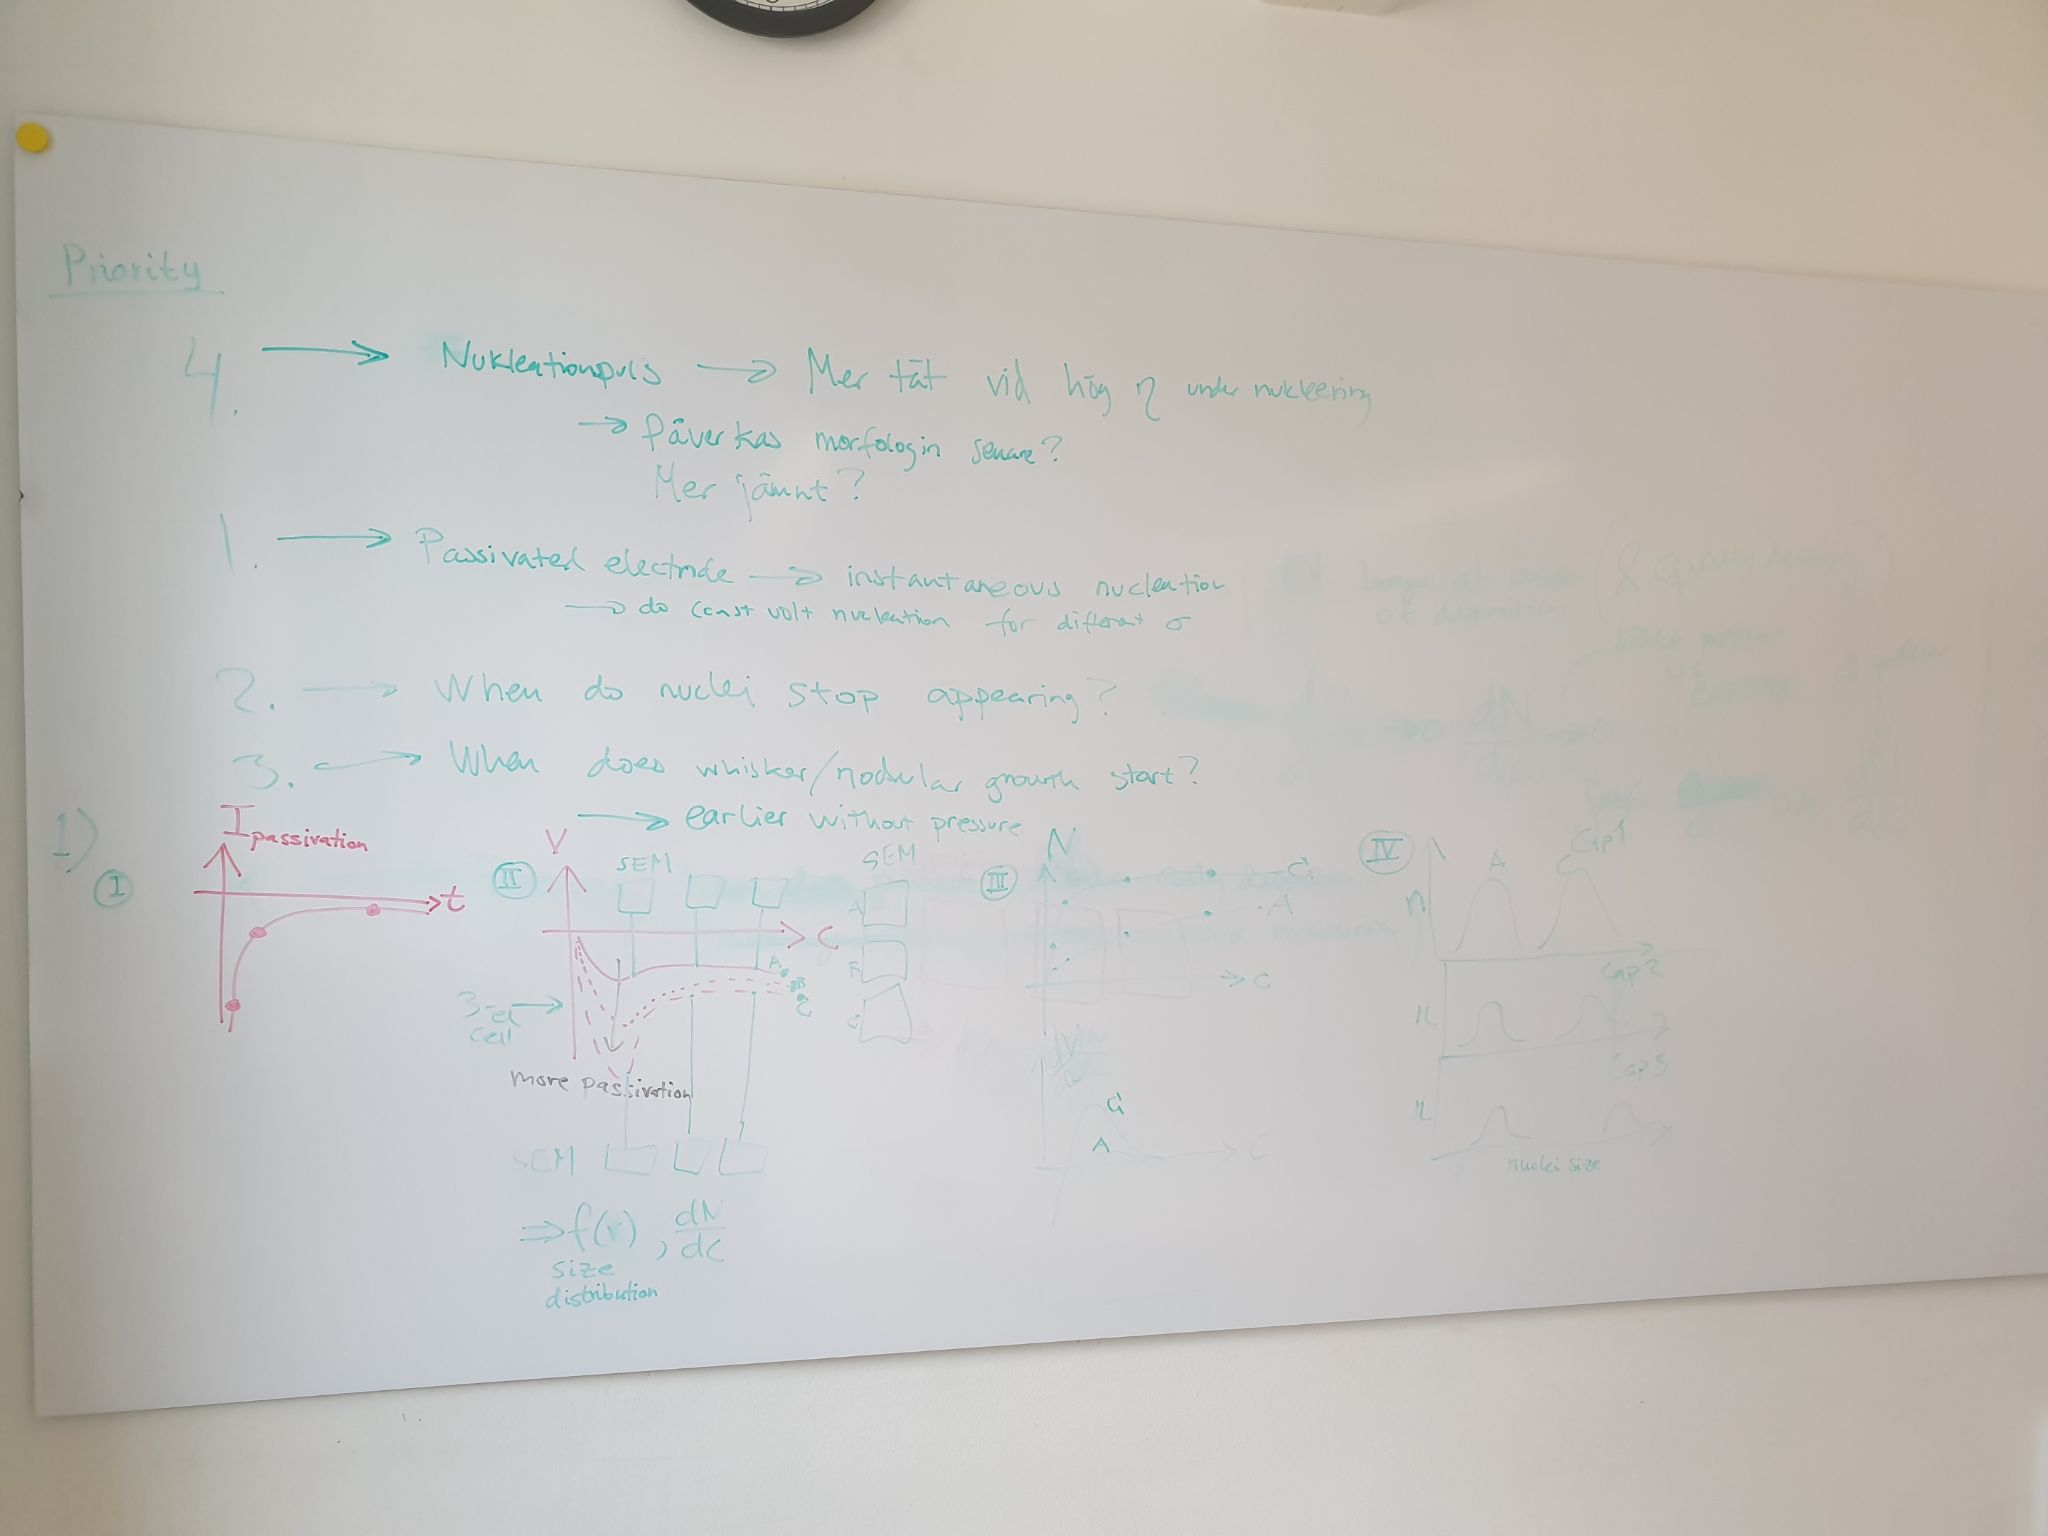 Priority
4. → Nukleationpuls → Mer tät vid hög η under nukleering
→ Påverkas morfologin senare?
Mer jämnt?
1. → Passivated electrode → instantaneous nucleation
→ do const volt nucleation for different σ
2. → When do nuclei stop appearing?
3. → When does whisker/nodular growth start?
→ earlier without pressure
1)
I
I passivation
t
II
V
SEM
C
A
B
C
3-el cell
more passivation
SEM
⇒ f(r), dN/dC
size
distribution
SEM
A
B
C
III
N
C
A
C
C
A
C
IV
n
A
C
Cap1
n
Cap2
n
Cap3
nuclei size
of deposition
dN/dC → 0